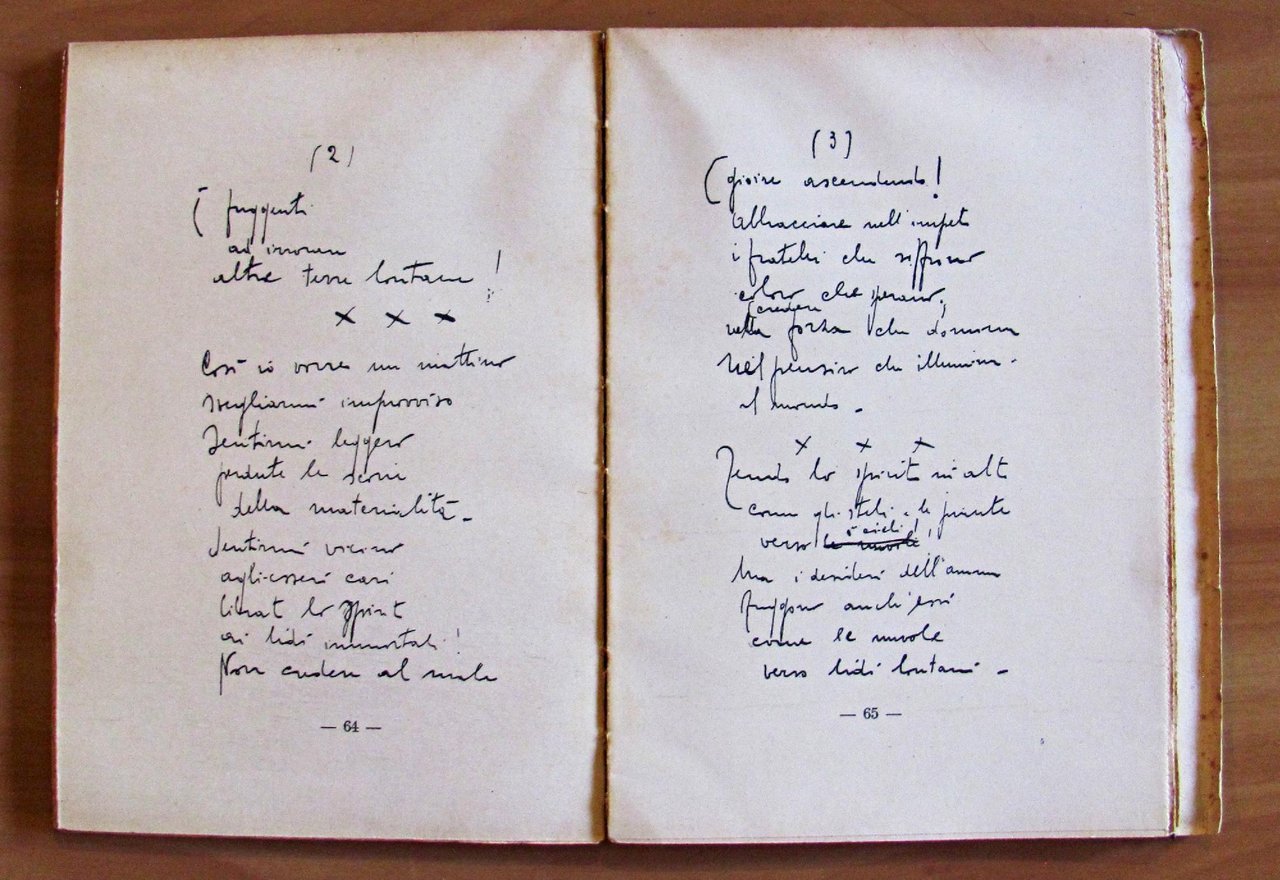 (2)
( fuggenti
ad irrorare
altre terre lontane !
x x x
Così io vorrei un mattino
svegliarmi improvviso
sentirmi leggero
perdute le scorie
della materialità -
sentirmi vicino
agli esseri cari
librat lo spirit
ai lidi immortali !
Non credere al male
— 64 —
(3)
( gioire ascendendo !
abbracciare nell'impeto
i fratelli che soffrono
coloro che sperano,
(credere
nella forza che domina
nel pensiero che illumina -
il mondo -
x x x
Tendo lo spirito in alto
come gli steli e le piante
i cieli !
verso le nuvole ,
Ma i desideri dell'anima
fuggono anch'essi
come le nuvole
verso lidi lontani -
— 65 —